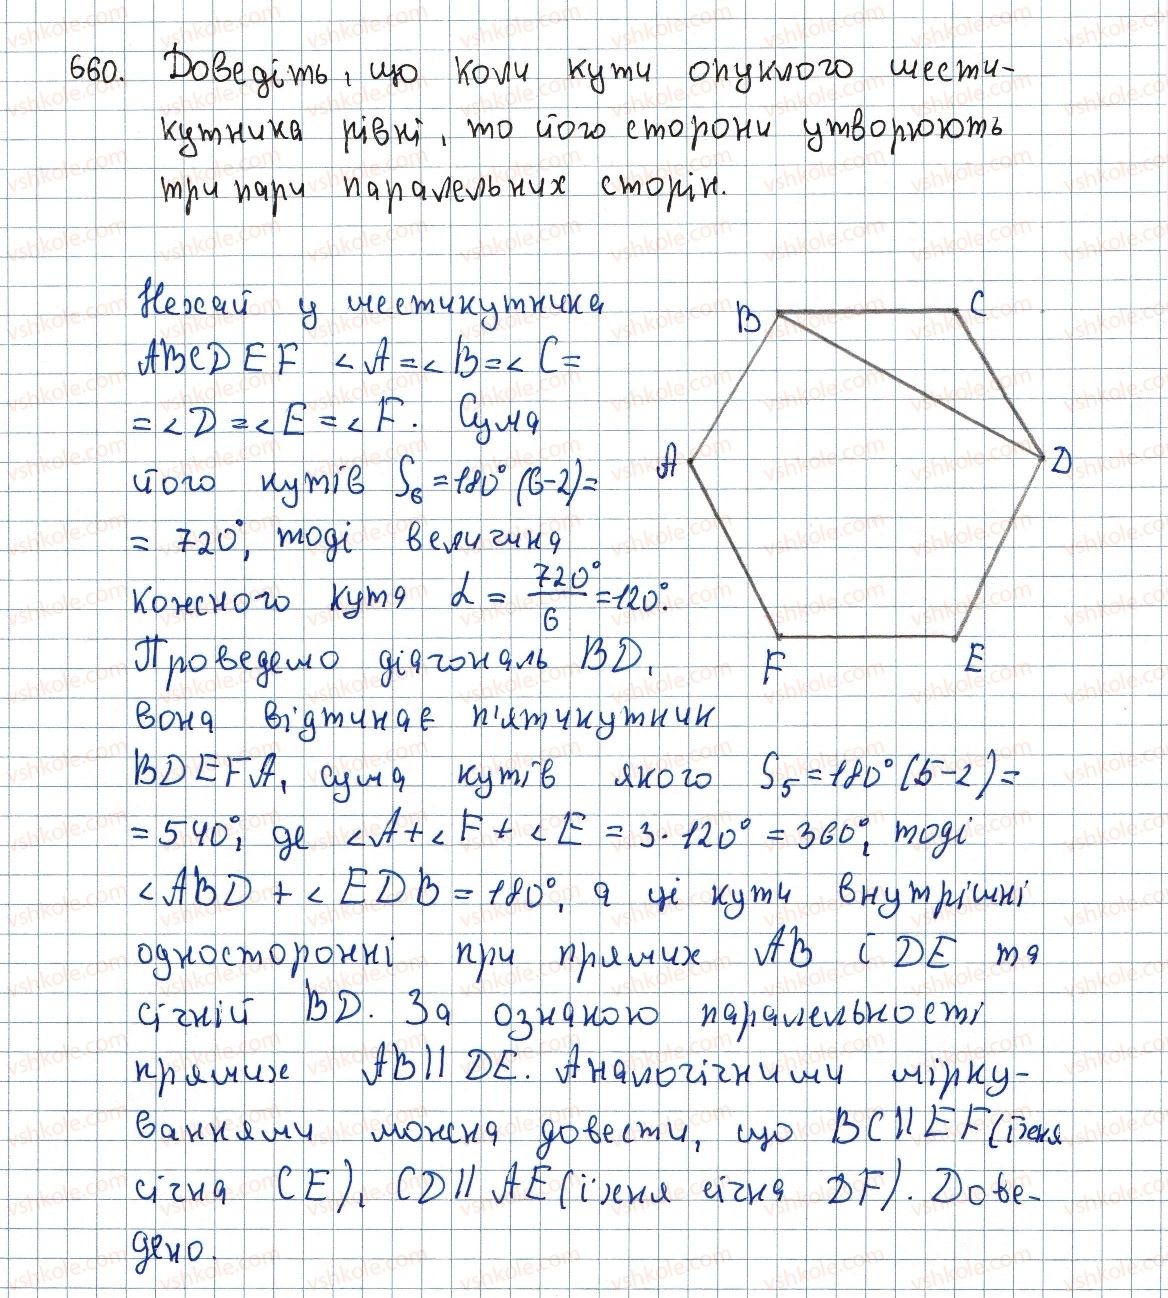 660. Доведіть, що коли кути опуклого шести-
кутника рівні, то його сторони утворюють
три пари паралельних сторін.
Нехай у шестикутника
ABCDEF ∠A=∠B=∠C=
=∠D=∠E=∠F. Сума
його кутів S₆=180°(6-2)=
= 720°, тоді величина
кожного кута α = 720°/6 =120°.
Проведемо діагональ BD,
вона відтинає п'ятикутник
BDEFA, сума кутів якого S₅=180°(5-2)=
=540°, де ∠A+∠F+∠E = 3·120° = 360°, тоді
∠ABD + ∠EDB = 180°, а ці кути внутрішні
односторонні при прямих AB і DE та
січній BD. За ознакою паралельності
прямих AB||DE. Аналогічними мірку-
ваннями можна довести, що BC||EF(їхня
січна CE), CD||AE(їхня січна DF). Дове-
дено.
B
C
A
D
F
E
vshkole.com